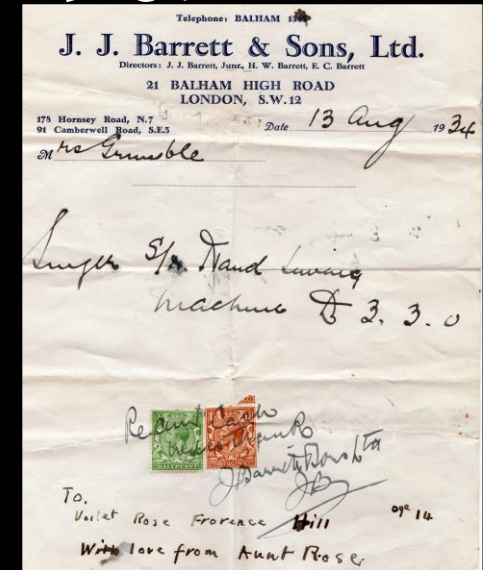 Telephone: BALHAM
J. J. Barrett & Sons, Ltd.
Directors: J. J. Barrett, Junr., H. W. Barrett, E. C. Barrett
21 BALHAM HIGH ROAD
LONDON, S.W.12
178 Hornsey Road, N.7
91 Camberwell Road, S.E.5
Date 13 Aug 1934
Mrs Grumble
Singer S/H Hand Sewing
Machine £ 3. 3. 0
Recd Cash
with thanks
J Barrett & Sons Ltd
JB
HALFPENNY
To.
Violet Rose Frorence Hill age 14
With love from Aunt Rose